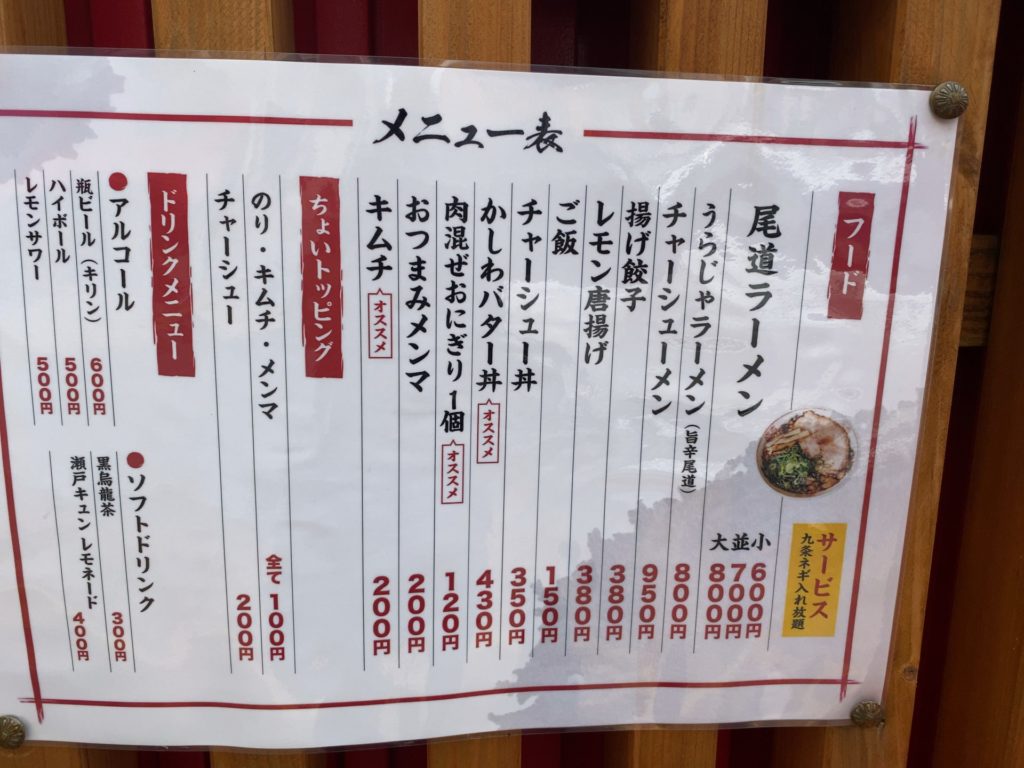 メニュー表
フード
サービス
九条ネギ入れ放題
尾道ラーメン
小 600円
並 700円
大 800円
うらじゃラーメン（旨辛尾道） 800円
チャーシューメン 950円
揚げ餃子 380円
レモン唐揚げ 380円
ご飯 150円
チャーシュー丼 350円
かしわバター丼 オススメ 430円
肉混ぜおにぎり1個 オススメ 120円
おつまみメンマ 200円
キムチ オススメ 200円
ちょいトッピング
のり・キムチ・メンマ 全て 100円
チャーシュー 200円
ドリンクメニュー
●アルコール
瓶ビール（キリン） 600円
ハイボール 500円
レモンサワー 500円
●ソフトドリンク
黒烏龍茶 300円
瀬戸キュン レモネード 400円